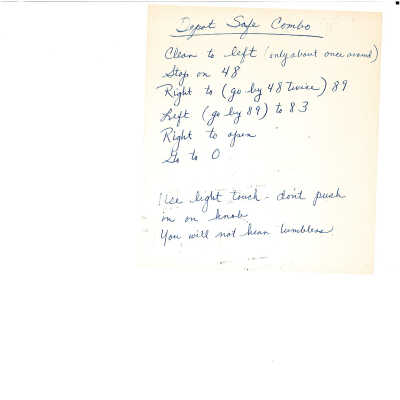 Depot Safe Combo
Clean to left (only about once around)
Stop on 48
Right to (go by 48 twice) 89
Left (go by 89) to 83
Right to open
Go to 0
Use light touch - don't push
in on knob
You will not hear tumblers